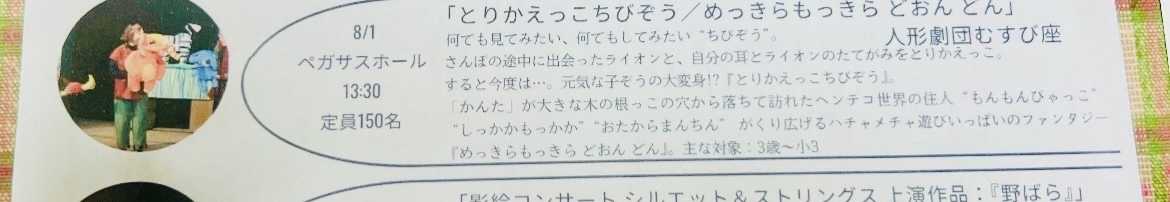 8/1
ペガサスホール
13:30
定員150名
「とりかえっこちびぞう／めっきらもっきら どおん どん」
人形劇団むすび座
何でも見てみたい、何でもしてみたい“ちびぞう”。
さんぽの途中に出会ったライオンと、自分の耳とライオンのたてがみをとりかえっこ。
すると今度は…。元気な子ぞうの大変身!?『とりかえっこちびぞう』。
「かんた」が大きな木の根っこの穴から落ちて訪れたヘンテコ世界の住人“もんもんびゃっこ”
“しっかかもっかか”“おたからまんちん” がくり広げるハチャメチャ遊びいっぱいのファンタジー
『めっきらもっきら どおん どん』。主な対象：3歳～小3
「影絵コンサート シルエット＆ストリングス 上演作品：『野ばら』」